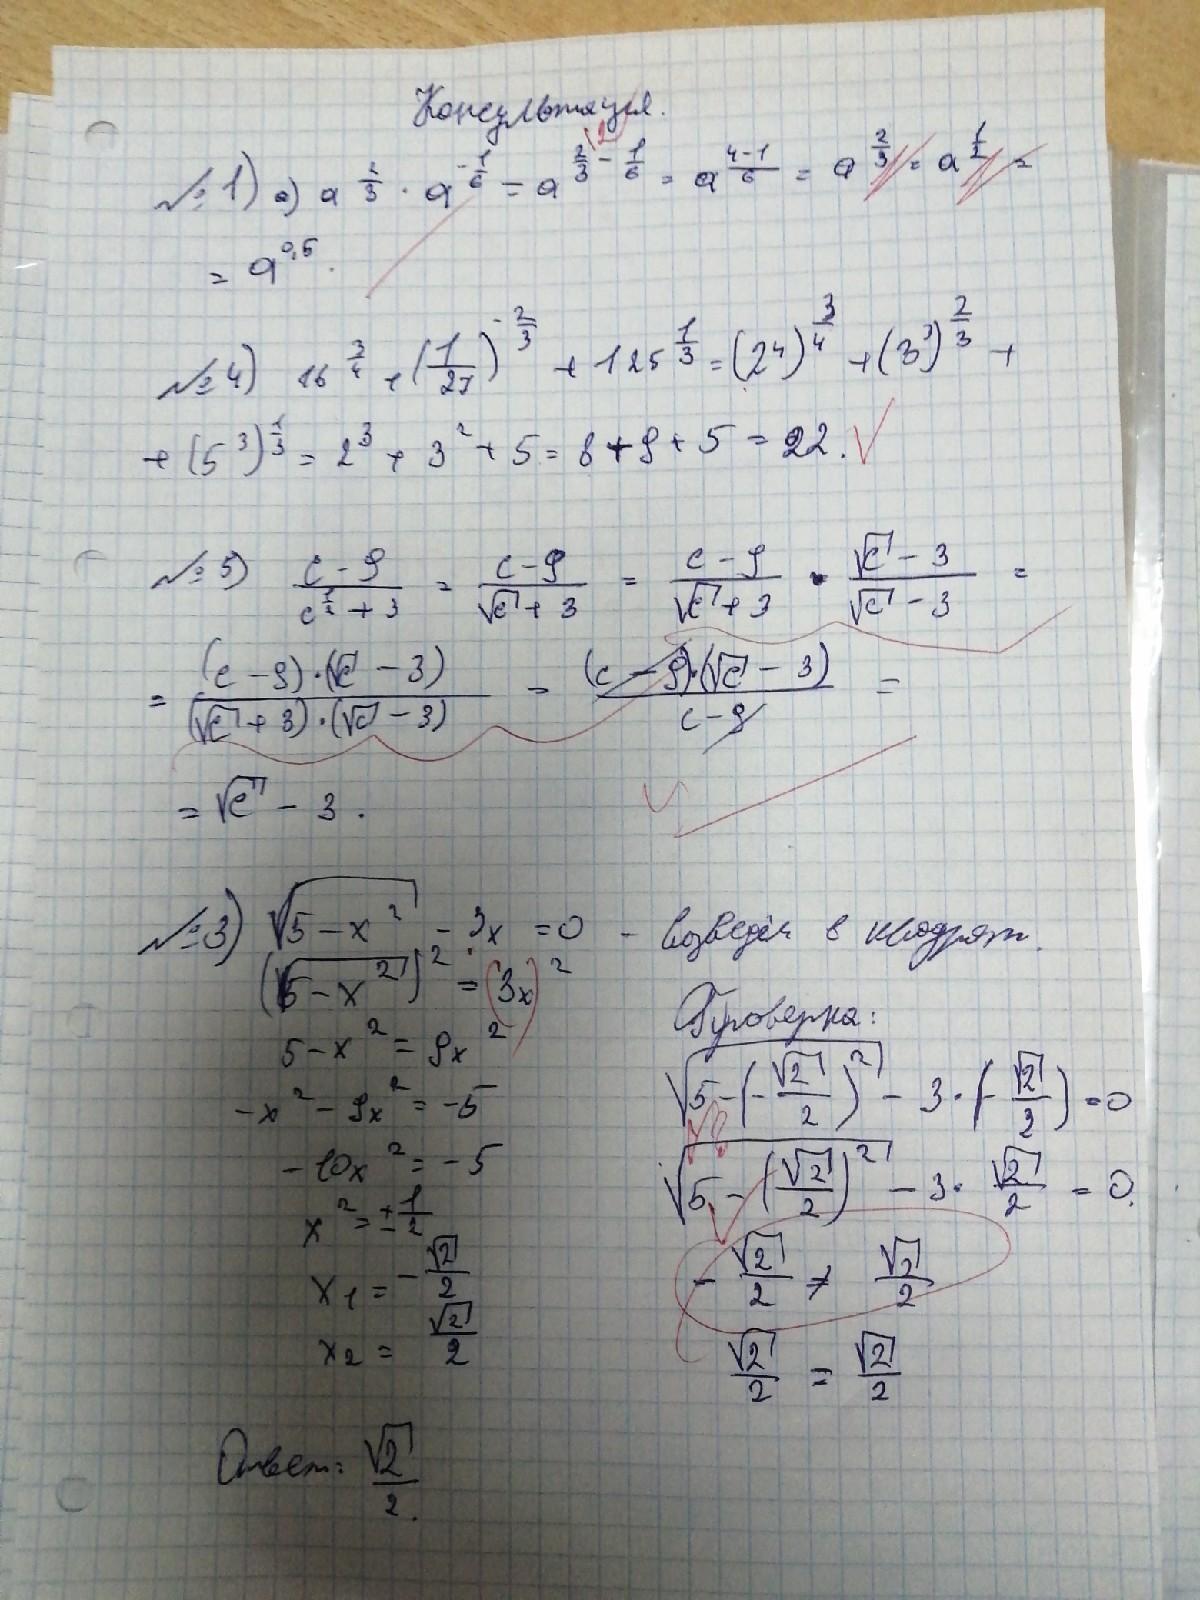 Консультация.
№1) а) a^{2/3} · a^{-1/6} = a^{2/3 - 1/6} = a^{(4-1)/6} = a^{2/3} = a^{1/2} =
= a^{0,5}.
№4) 16^{3/4} + (1/27)^{-2/3} + 125^{1/3} = (2^4)^{3/4} + (3^3)^{2/3} +
+ (5^3)^{1/3} = 2^3 + 3^2 + 5 = 8 + 9 + 5 = 22.
№5) (c-9)/(c^{1/2}+3) = (c-9)/(√c+3) = (c-9)/(√c+3) · (√c-3)/(√c-3) =
= ((c-9)·(√c-3))/((√c+3)·(√c-3)) = ((c-9)·(√c-3))/(c-9) =
= √c - 3.
№3) √(5-x²) - 3x = 0 - возведём в квадрат.
(√(5-x²))² = (3x)²
5-x² = 9x²
-x² - 9x² = -5
-10x² = -5
x² = ±1/2
x1 = -√2/2
x2 = √2/2
Проверка:
√(5-(-√2/2)²) - 3·(-√2/2) = 0
√(5-(√2/2)²) - 3·√2/2 = 0.
-√2/2 ≠ √2/2
√2/2 = √2/2
Ответ: √2/2.